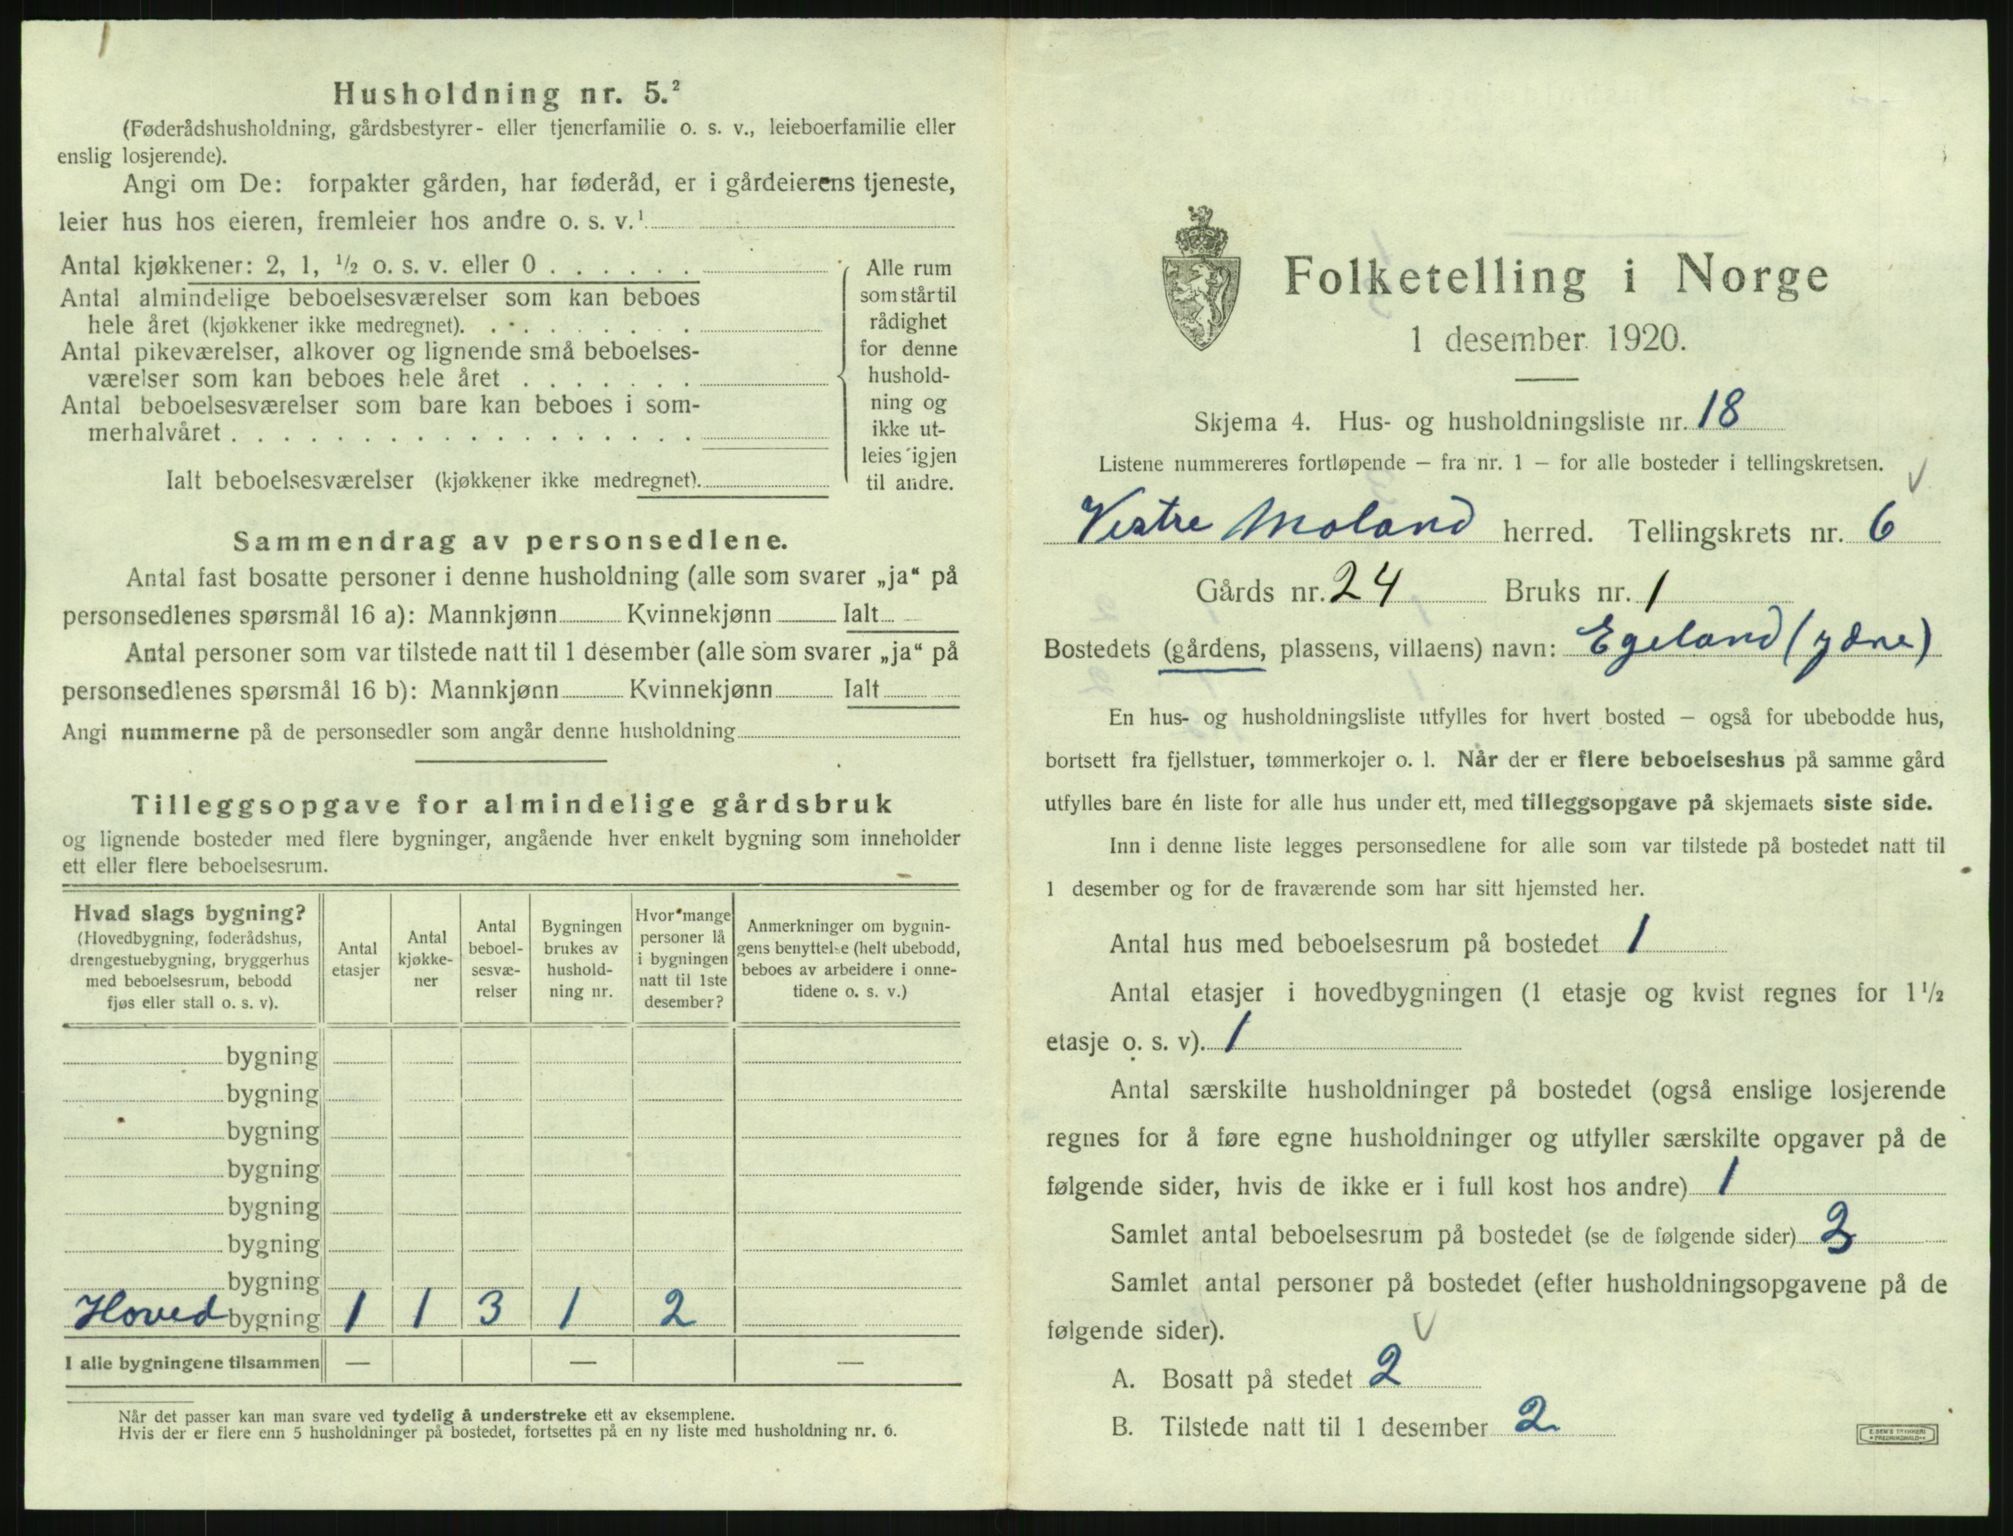 Husholdning nr. 5.²
(Føderådshusholdning, gårdsbestyrer- eller tjenerfamilie o. s. v., leieboerfamilie eller
enslig losjerende).
Angi om De: forpakter gården, har føderåd, er i gårdeierens tjeneste,
leier hus hos eieren, fremleier hos andre o. s. v.¹
Antal kjøkkener: 2, 1, ½ o. s. v. eller 0 . . . . . .
Antal almindelige beboelsesværelser som kan beboes
hele året (kjøkkener ikke medregnet). . . . . . . . .
Antal pikeværelser, alkover og lignende små beboelses-
værelser som kan beboes hele året . . . . . . .
Antal beboelsesværelser som bare kan beboes i som-
merhalvåret . . . . . . . . . . . . . . . . . .
Ialt beboelsesværelser (kjøkkener ikke medregnet).
Alle rum
som står til
rådighet
for denne
hushold-
ning og
ikke ut-
leies igjen
til andre.
Sammendrag av personsedlene.
Antal fast bosatte personer i denne husholdning (alle som svarer „ja“ på
personsedlenes spørsmål 16 a): Mannkjønn Kvinnekjønn Ialt
Antal personer som var tilstede natt til 1 desember (alle som svarer „ja“ på
personsedlenes spørsmål 16 b): Mannkjønn Kvinnekjønn Ialt
Angi nummerne på de personsedler som angår denne husholdning
Tilleggsopgave for almindelige gårdsbruk
og lignende bosteder med flere bygninger, angående hver enkelt bygning som inneholder
ett eller flere beboelsesrum.
Hvad slags bygning?
(Hovedbygning, føderådshus,
drengestuebygning, bryggerhus
med beboelsesrum, bebodd
fjøs eller stall o. s. v).
Antal
etasjer
Antal
kjøkke-
ner
Antal
beboel-
sesvæ-
relser
Bygningen
brukes av
hushold-
ning nr.
Hvor mange
personer lå
i bygningen
natt til 1ste
desember?
Anmerkninger om bygnin-
gens benyttelse (helt ubebodd,
beboes av arbeidere i onne-
tidene o. s. v.)
bygning
bygning
bygning
bygning
bygning
bygning
bygning
Hoved bygning 1 1 3 1 2
I alle bygningene tilsammen — — —
Når det passer kan man svare ved tydelig å understreke ett av eksemplene.
Hvis der er flere enn 5 husholdninger på bostedet, fortsettes på en ny liste med husholdning nr. 6.
Folketelling i Norge
1 desember 1920.
Skjema 4. Hus- og husholdningsliste nr. 18
Listene nummereres fortløpende – fra nr. 1 – for alle bosteder i tellingskretsen.
Vestre Moland herred. Tellingskrets nr. 6
Gårds nr. 24 Bruks nr. 1
Bostedets (gårdens, plassens, villaens) navn: Egeland (ydre)
En hus- og husholdningsliste utfylles for hvert bosted – også for ubebodde hus,
bortsett fra fjellstuer, tømmerkojer o. l. Når der er flere beboelseshus på samme gård
utfylles bare én liste for alle hus under ett, med tilleggsopgave på skjemaets siste side.
Inn i denne liste legges personsedlene for alle som var tilstede på bostedet natt til
1 desember og for de fraværende som har sitt hjemsted her.
Antal hus med beboelsesrum på bostedet 1
Antal etasjer i hovedbygningen (1 etasje og kvist regnes for 1½
etasje o. s. v). 1
Antal særskilte husholdninger på bostedet (også enslige losjerende
regnes for å føre egne husholdninger og utfyller særskilte opgaver på de
følgende sider, hvis de ikke er i full kost hos andre) 1
Samlet antal beboelsesrum på bostedet (se de følgende sider) 3
Samlet antal personer på bostedet (efter husholdningsopgavene på de
følgende sider).
A. Bosatt på stedet 2
B. Tilstede natt til 1 desember 2